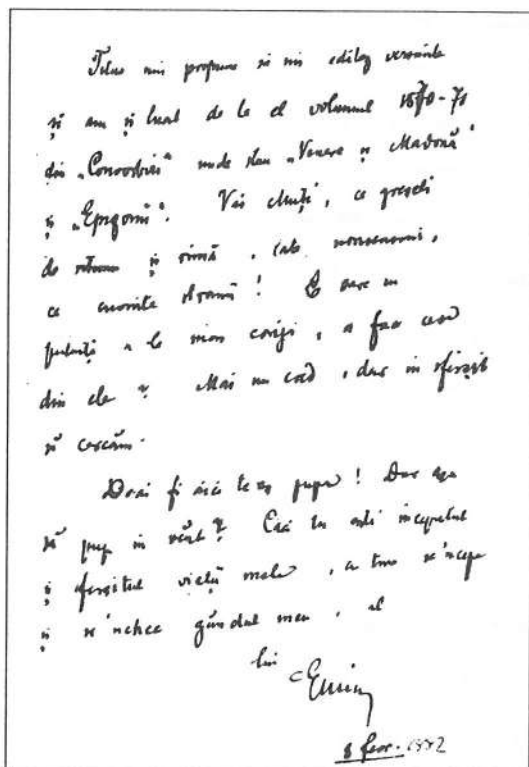 Titus îmi propune să-mi editez versurile
și am și luat de la el volumul 1870-71
din „Convorbiri” unde stau „Venere și Madonă”
și „Epigonii”. Vai Muți, ce greșeli
de ritm și rimă, câte nonsensuri,
ce cuvinte stranii! E oare cu
putință a le mai corija, a face ceva
din ele? Mai nu cred, dar în sfârșit
să cercăm.
De-ai fi aici te-aș pupa! Dar așa
să pup în vânt? Căci tu ești începutul
și sfârșitul vieții mele, cu tine se 'ncepe
și se 'ncheie gândul meu, al
lui Emin
8 fevr. 1882